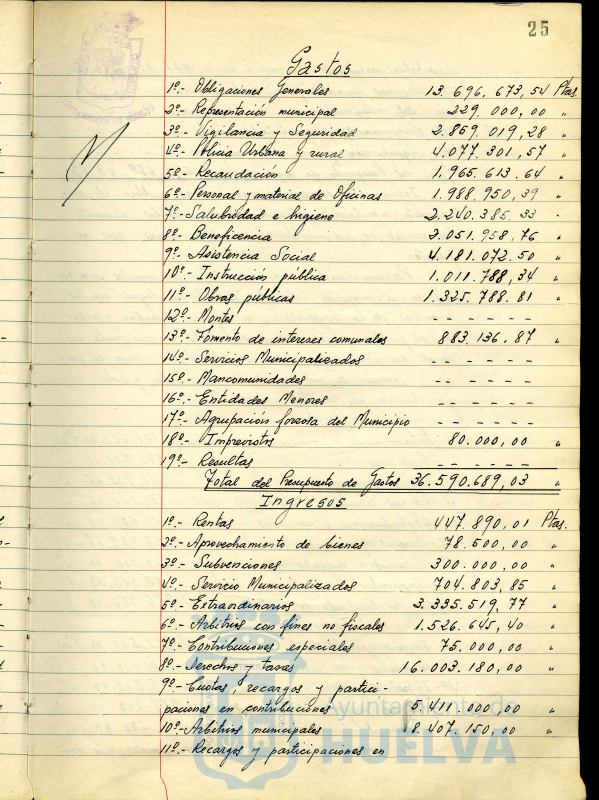 25
Gastos
1º.- Obligaciones Generales 13.696.673,54 Ptas.
2º.- Representación municipal 229.000,00 "
3º.- Vigilancia y Seguridad 2.859.019,28 "
4º.- Policia Urbana y rural 4.077.301,57 "
5º.- Recaudación 1.965.613.64 "
6º.- Personal y material de Oficinas 1.988.950,39 "
7º.- Salubridad e higiene 2.240.385.33 "
8º.- Beneficencia 2.051.958,76 "
9º.- Asistencia Social 4.181.072.50 "
10º.- Instrucción pública 1.011.788,34 "
11º.- Obras públicas 1.325.788.81 "
12º.- Montes - - - - - -
13º.- Fomento de intereses comunales 883.136.87 "
14º.- Servicios Municipalizados - - - - - -
15º.- Mancomunidades - - - - - -
16º.- Entidades Menores - - - - - -
17º.- Agrupación forzosa del Municipio - - - - - -
18º.- Imprevistos 80.000,00 "
19º.- Resultas - - - - - -
Total del Presupuesto de Gastos 36.590.689,03 "
Ingresos
1º.- Rentas 447.890.01 Ptas.
2º.- Aprovechamiento de bienes 78.500,00 "
3º.- Subvenciones 300.000,00 "
4º.- Servicio Municipalizados 704.803,85 "
5º.- Extraordinarios 3.335.519,77 "
6º.- Arbitrios con fines no fiscales 1.526.645,40 "
7º.- Contribuciones especiales 75.000,00 "
8º.- Derechos y tasas 16.003.180,00 "
9º.- Cuotas, recargos y partici-
paciones en contribuciones 5.411.000,00 "
10º.- Arbitrios municipales 8.407.150,00 "
11º.- Recargos y participaciones en
Ayuntamiento de
HUELVA